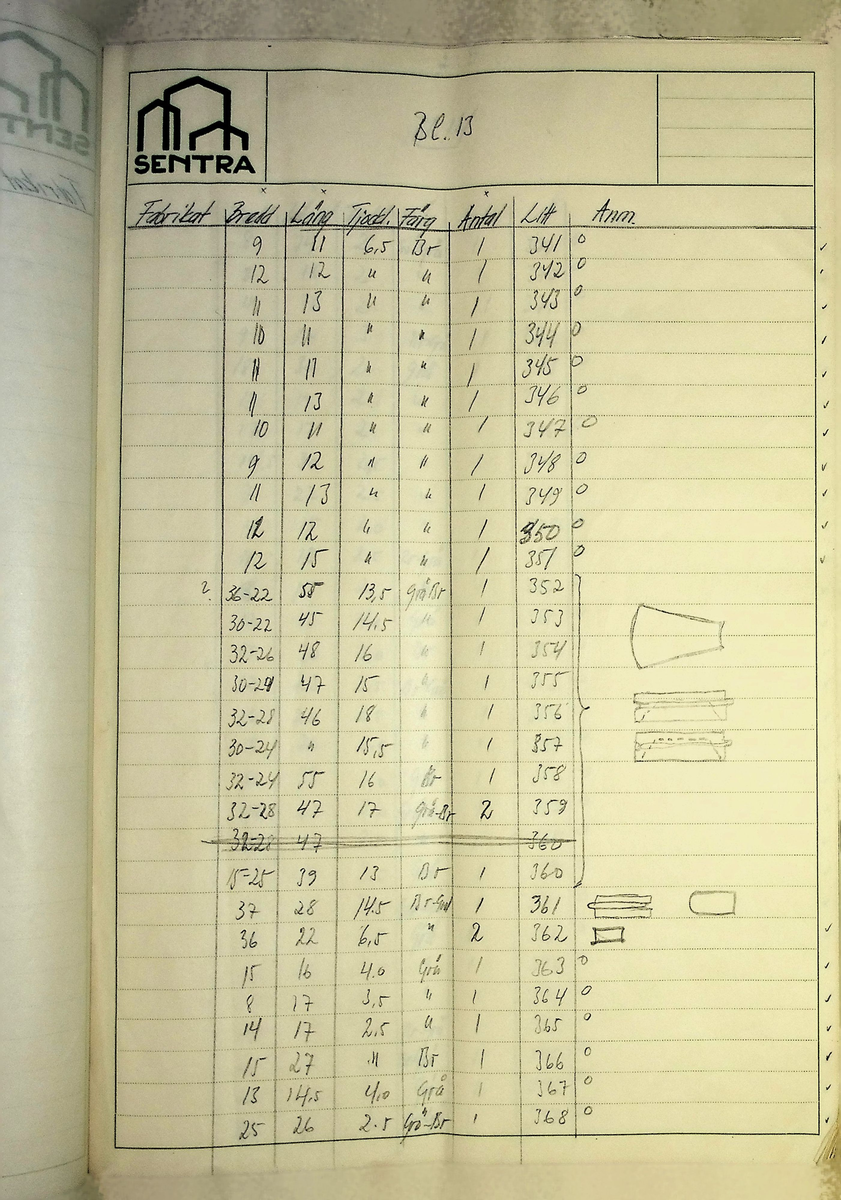 SENTRA
Bl. 13
Fabrikat Bredd Läng Tjockl. Färg Antal Litt Anm.
9 11 6,5 Br 1 341 o
12 12 " " 1 342 o
11 13 " " 1 343 o
10 11 " " 1 344 o
11 11 " " 1 345 o
11 13 " " 1 346 o
10 11 " " 1 347 o
9 12 " " 1 348 o
11 13 " " 1 349 o
12 12 " " 1 350 o
12 15 " " 1 351 o
?. 36-22 55 13,5 Grå-Br 1 352
30-22 45 14,5 " 1 353
32-26 48 16 " 1 354
30-24 47 15 " 1 355
32-28 46 18 " 1 356
30-24 " 15,5 " 1 357
32-24 55 16 Br 1 358
32-28 47 17 Grå-Br 2 359
32-28 47 360
15-25 39 13 Br 1 360
37 28 14.5 1 361
36 22 6,5 " 2 362
15 16 4.0 Grå 1 363 o
8 17 3,5 " 1 364 o
14 17 2.5 " 1 365 o
15 27 " Br 1 366 o
13 14,5 4,0 Grå 1 367 o
25 26 2.5 Grå-Br 1 368 o